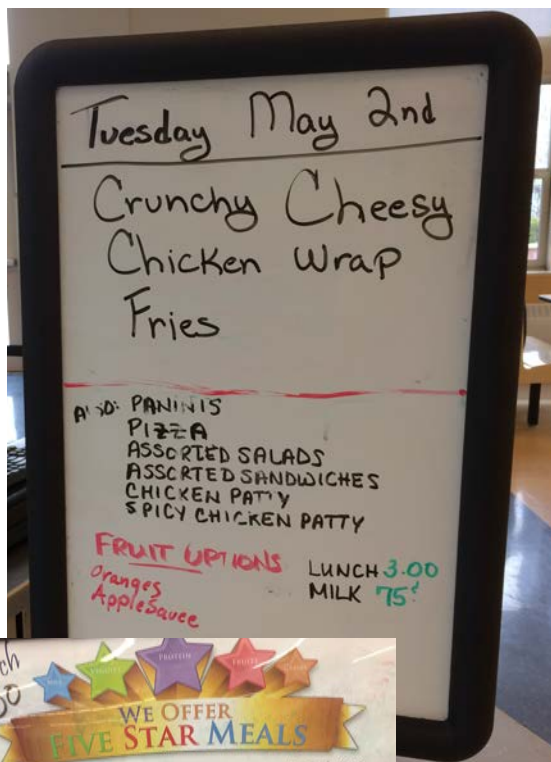 Tuesday May 2nd
Crunchy Cheesy
Chicken Wrap
Fries
ALSO: PANINIS
PIZZA
ASSORTED SALADS
ASSORTED SANDWICHES
CHICKEN PATTY
SPICY CHICKEN PATTY
FRUIT OPTIONS
Oranges
Applesauce
LUNCH 3.00
MILK 75¢
PROTEIN
FRUITS
WE OFFER
FIVE STAR MEALS